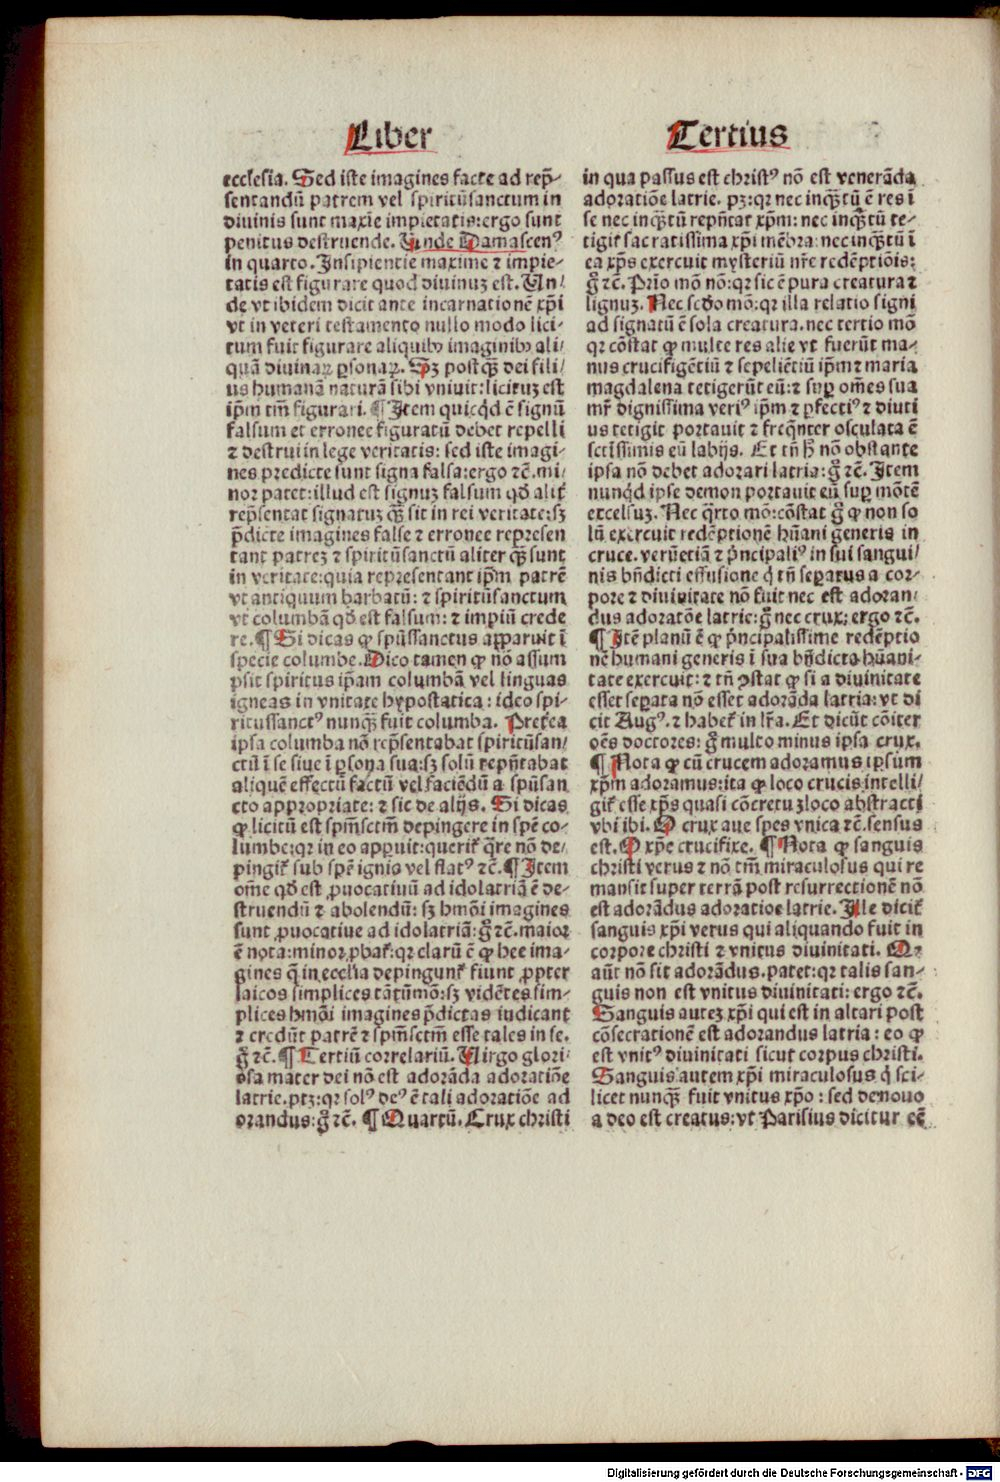 Liber
Tertius
ecclesia. Sed iste imagines facte ad rep̄-
sentandū patrem vel spiritūsanctum in
diuinis sunt maxīe impietatis:ergo sunt
penitus destruende. Unde Damascenꝰ
in quarto. Insipientie maxime ⁊ impie-
tatis est figurare quod diuinuꝫ est. Un-
de vt ibidem dicit ante incarnationē xp̄i
vt in veteri testamento nullo modo lici-
tum fuit figurare aliquibꝰ imaginibꝰ ali-
quā diuinaꝝ ꝑsonaꝝ. Sꝫ postꝙ̄ dei fili-
us humanā naturā sibi vniuit:licituꝫ est
ip̄m tm̄ figurari. ¶ Item quicqd ē signū
falsum et erronee figuratū debet repelli
⁊ destrui in lege veritatis: sed iste imagi-
nes predicte sunt signa falsa:ergo ⁊cē. mi-
nor patet:illud est signuꝫ falsum qd̄ alit̄
rep̄sentat signatuꝫ ꝙ̄ sit in rei veritate:sꝫ
p̄dicte imagines false ⁊ erronee represen
tant patreꝫ ⁊ spiritūsanctū aliter ꝙ̄ sunt
in veritate:quia representant ip̄m patrē
vt antiquum barbatū: ⁊ spiritūsanctum
vt columbā qd̄ est falsum: ⁊ impiū crede
re. ¶ Si dicas ꝙ spūssanctus apparuit ī
specie columbe. Dico tamen ꝙ nō assum
psit spiritus ip̄am columbā vel linguas
igneas in vnitate hypostatica : ideo spi-
ritussanctꝰ nunꝙ̄ fuit columba. Preťea
ipsa columba nō rep̄sentabat spiritūsan-
ctū ī se siue ī ꝑsona sua:sꝫ solū repn̄tabat
aliquē effectū factū vel faciēdū a spūsan
cto appropriate: ⁊ sic de alijs. Si dicas
ꝙ licitū est spm̄sctm̄ depingere in spē co-
lumbe:qꝛ in eo appuit:querit̄ q̄re nō de-
pingit̄ sub spē ignis vel flatꝰ ⁊cē. ¶ Item
om̄e qd̄ est ꝓuocatiuū ad idolatriā ē de-
struendū ⁊ abolendū: sꝫ hmōi imagines
sunt ꝓuocatiue ad idolatriā: g̊ ⁊cē. maior
ē nota:minor ꝓbat̄: qꝛ clarū ē ꝙ hee ima-
gines q̄ in eccl'ia depingunt̄ fiunt ꝓpter
laicos simplices tātūmō:sꝫ vidētes sim-
plices hmōi imagines p̄dictas iudicant
⁊ credūt patrē ⁊ spm̄sctm̄ esse tales in se.
g̊ ⁊cē. ¶ Tertiū correlariū. Uirgo glori-
osa mater dei nō est adorāda adoratiōe
latrie. ptꝫ:qꝛ solꝰ deꝰ ē tali adoratiōe ad
orandus: g̊ ⁊cē. ¶ Quartū. Crux christi
in qua passus est christꝰ nō est venerāda
adoratiōe latrie. pꝫ:qꝛ nec inqꝙ̄tū ē res ī
se nec inqꝙ̄tū repn̄tat xp̄m: nec inqꝙ̄tū te-
tigit sacratissima xp̄i mēbra: nec inqꝙ̄tū ī
ea xp̄s exercuit mysteriū nr̄e redēptiōis:
g̊ ⁊cē. Prīo mō nō: qꝛ sic ē pura creatura ⁊
lignuꝫ. Nec scd̄o mō: qꝛ illa relatio signi
ad signatū ē sola creatura. nec tertio mō
qꝛ cōstat ꝙ multe res alie vt fuerūt ma-
nus crucifigētiū ⁊ sepeliētiū ip̄m ⁊ maria
magdalena tetigerūt eū: ⁊ suꝑ om̄es sua
mr̄ dignissima veriꝰ ip̄m ⁊ ꝑfectiꝰ ⁊ diuti
us tetigit portauit ⁊ freqn̄ter osculata ē
sctissimis eū labijs. Et tn̄ h̄ nō obstante
ipsa nō debet adorari latria: g̊ ⁊cē. Item
nunqd ipse demon portauit eū suꝑ mōtē
excelsuꝫ. Nec q̄rto mō: cōstat g̊ ꝙ non so
lū exercuit redēptionē hūani generis in
cruce. verūetiā ⁊ p̄ncipaliꝰ in sui sangui-
nis bn̄dicti effusione q̇ tn̄ seꝑatus a cor-
pore ⁊ diuinitate nō fuit nec est adoran-
dus adoratōe latrie: g̊ nec crux: ergo ⁊cē.
¶ Itē planū ē ꝙ p̄ncipalissime redēptio
nē humani generis ī sua bn̄dicta hūani-
tate exercuit: ⁊ tn̄ ꝯstat ꝙ si a diuinitate
esset seꝑata nō esset adorāda latria: vt di
cit Augꝰ. ⁊ habet̄ in lr̄a. Et dicūt cōiter
oēs doctores: g̊ multo minus ipsa crux.
¶ Nota ꝙ cū crucem adoramus ipsum
xp̄m adoramus: ita ꝙ loco crucis intelli-
git̄ esse xp̄s quasi cōcretuꝫ loco abstracti
vbi ibi. O crux aue spes vnica ⁊cē. sensus
est. O xp̄e crucifixe. ¶ Nota ꝙ sanguis
christi verus ⁊ nō tm̄ miraculosus qui re
mansit super terrā post resurrectionē nō
est adorādus adoratiōe latrie. Ille dicit̄
sanguis xp̄i verus qui aliquando fuit in
corpore christi ⁊ vnitus diuinitati. Qꝛ
aūt nō sit adorādus. patet: qꝛ talis san-
guis non est vnitus diuinitati: ergo ⁊cē.
Sanguis auteꝫ xp̄i qui est in altari post
cōsecrationē est adorandus latria : eo ꝙ
est vnitꝰ diuinitati sicut corpus christi.
Sanguis autem xp̄i miraculosus q̇ sci-
licet nunꝙ̄ fuit vnitus xp̄o : sed denouo
a deo est creatus: vt Parisius dicitur eē
Digitalisierung gefördert durch die Deutsche Forschungsgemeinschaft - DFG